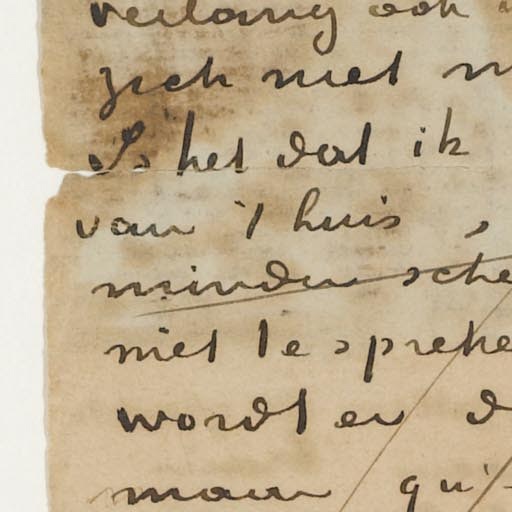 verlang ook
zich niet
Is het dat ik
van 't huis,
minder sche
niet te spreke
wordt en d
maar qu'